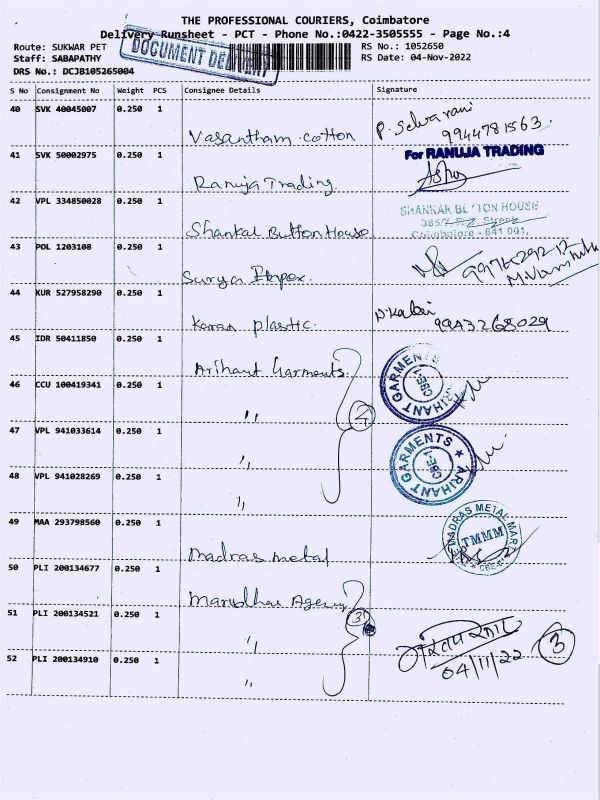 THE PROFESSIONAL COURIERS, Coimbatore
Delivery Runsheet - PCT - Phone No.:0422-3505555 - Page No.:4
Route: SUKWAR PET
RS No.: 1052650
Staff: SABAPATHY
RS Date: 04-Nov-2022
DRS No.: DCJB105265004
DOCUMENT DELIVERY
S No Consignment No Weight PCS Consignee Details Signature
40 SVK 40045007 0.250 1 Vasantham cotton P. Selvarani
9944781563.
41 SVK 50002975 0.250 1 Ranuja Trading For RANUJA TRADING
42 VPL 334850028 0.250 1 Shankal Button House SHANKAR BUTTON HOUSE
Street
Coimbatore - 641 001.
43 POL 1203108 0.250 1 Surya Impex.
44 KUR 527958290 0.250 1 plastic. D. Kalai
9943268029
45 IDR 50411850 0.250 1 Arihant Garments. ARIHANT GARMENTS CBE-1
46 CCU 100419341 0.250 1 " 4
47 VPL 941033614 0.250 1 " ARIHANT GARMENTS ★ CBE-1
48 VPL 941028269 0.250 1 "
49 MAA 293798560 0.250 1 Madras metal MADRAS METAL MART TMMM
50 PLI 200134677 0.250 1 Marudhar Agency
51 PLI 200134521 0.250 1 " 3
04/11/22 3
52 PLI 200134910 0.250 1 "